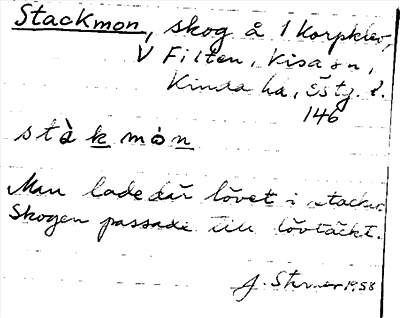 Stackmon, skog å 1 Korpklev,
V Filten, Kisa sn,
Kinda hd, Östg. l.
146
stàk mòn
Man lade där lövet i stackar.
Skogen passade till lövtäckt.
J. 1958